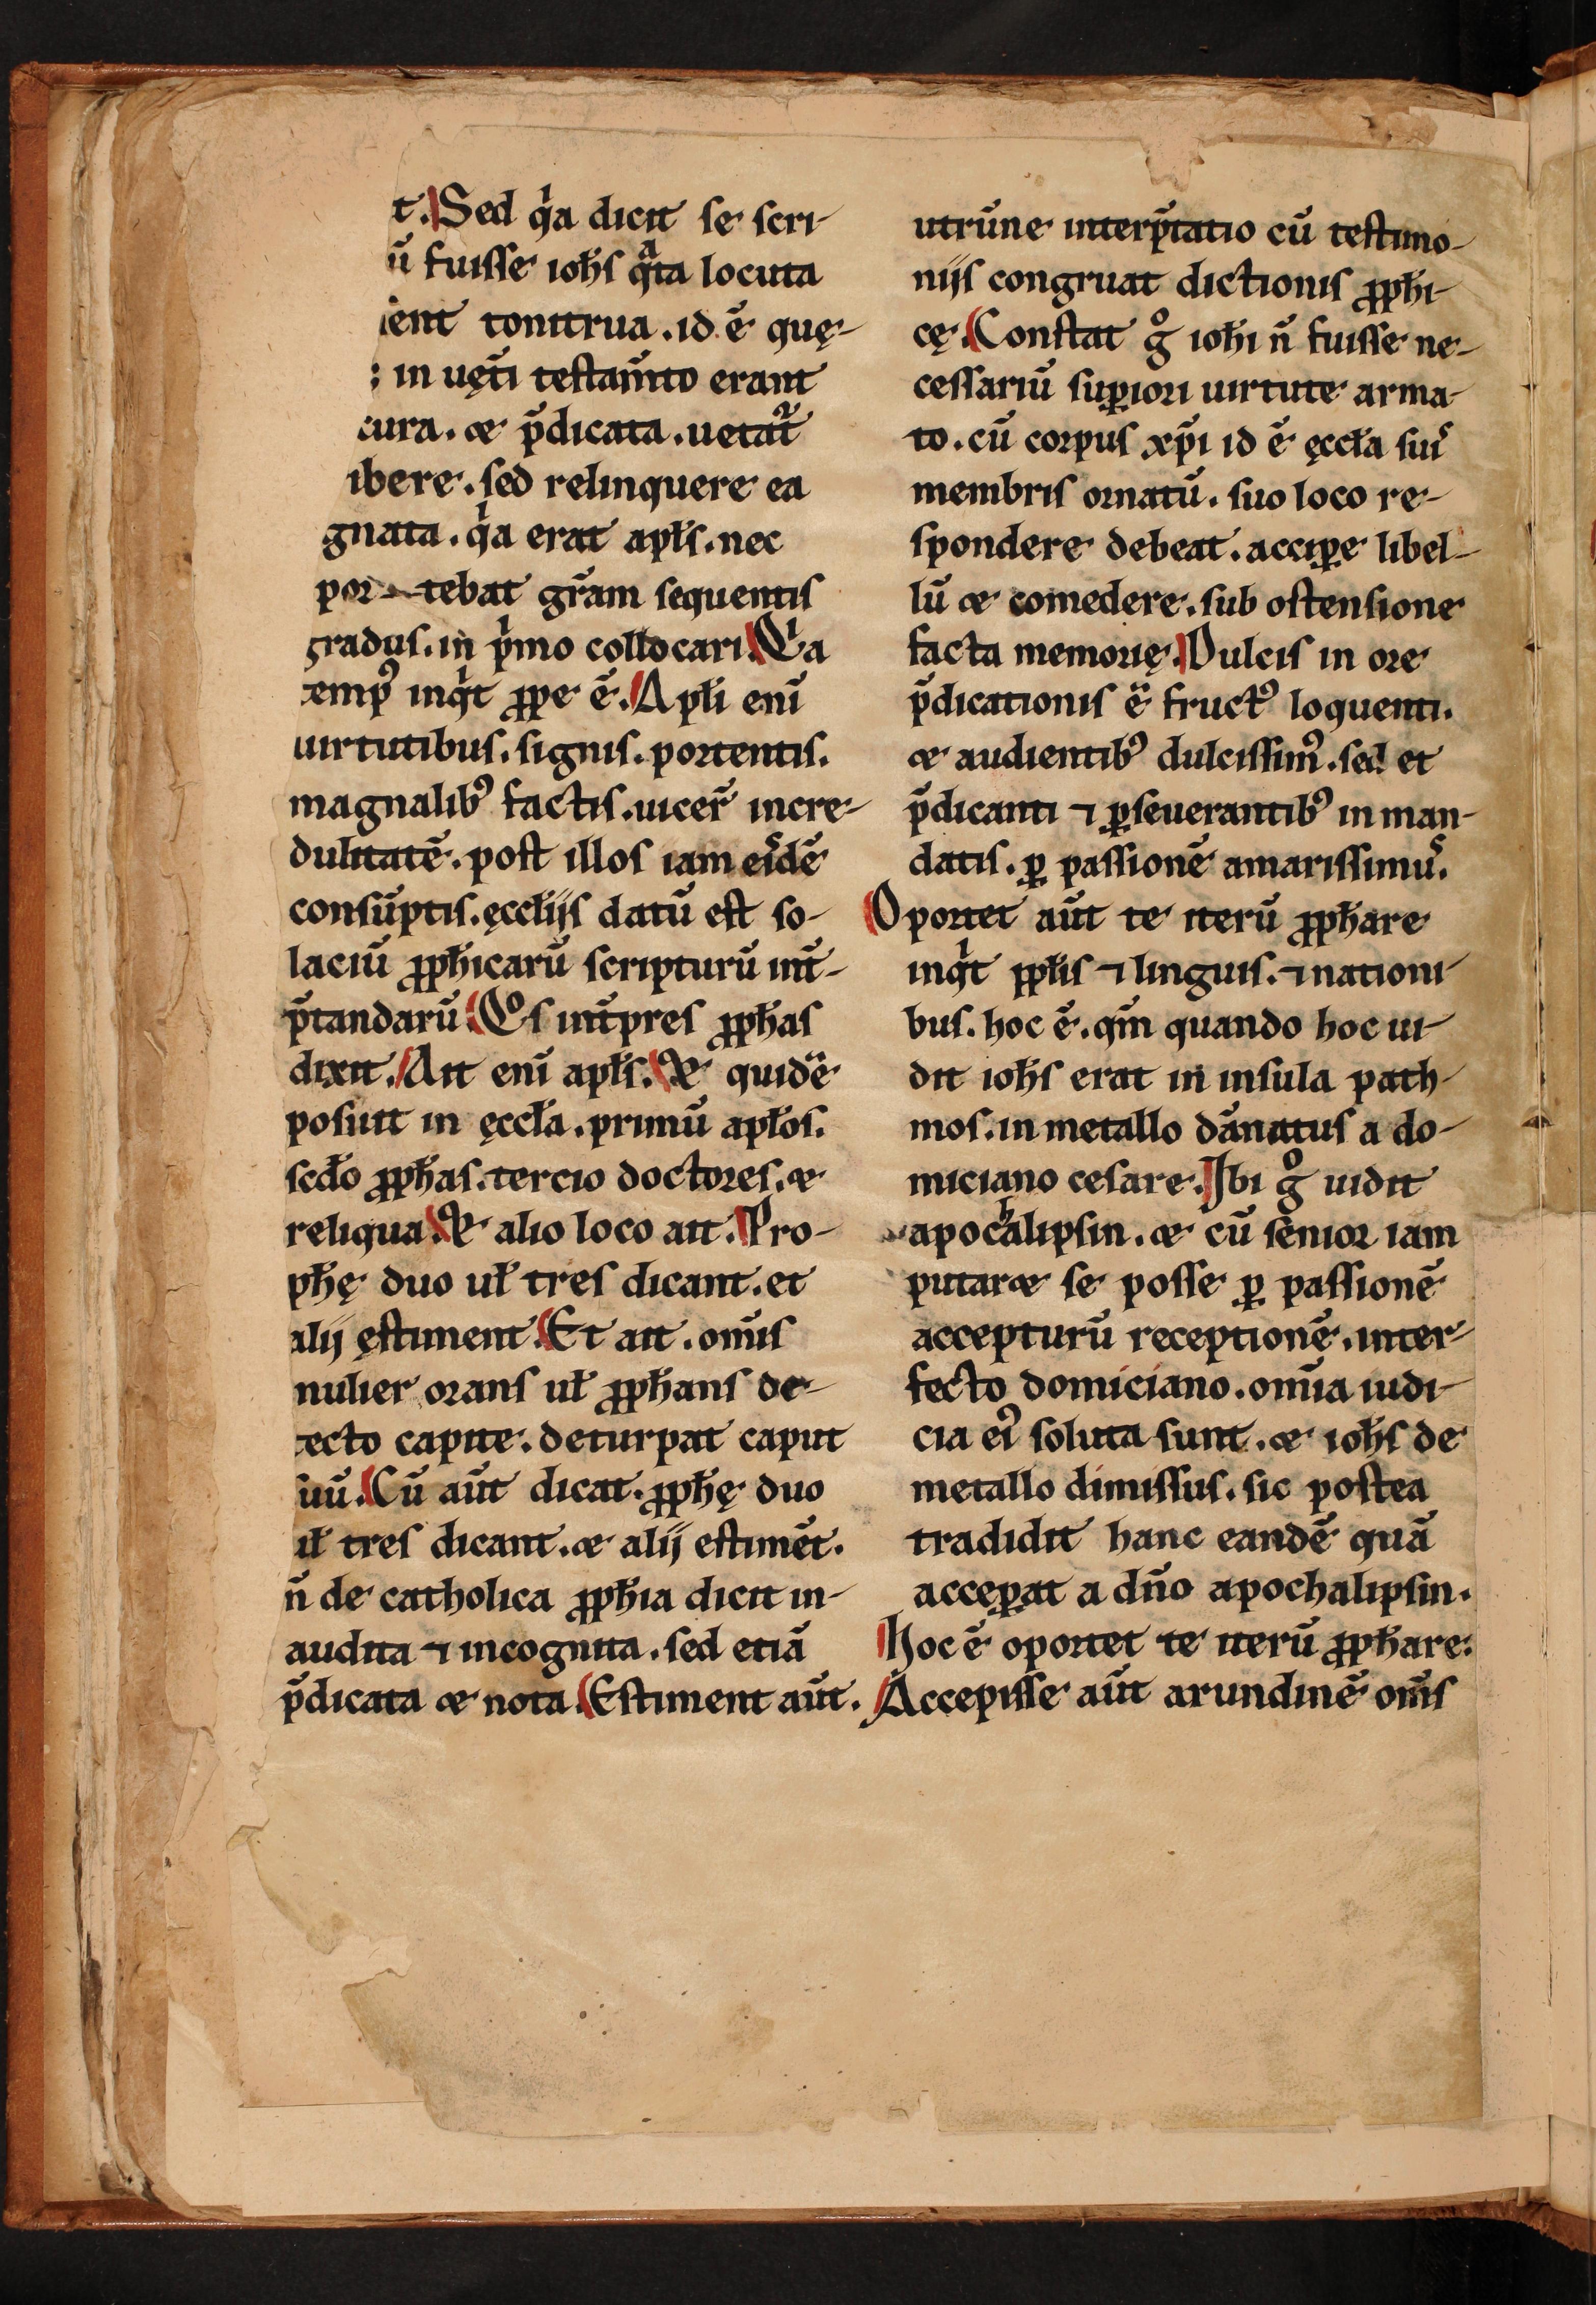 t. Sed qͥa dicit se scri-
ū fuisse ioħs qᷓta locuta
ient tonitrua. id ē quę-
; in uęti̅ testam̅to erant
cura. ⁊ p̅dicata. uetat᷑
ibere. sed relinquere ea
gnata. qͥa erat apƚs. nec
por tebat gr̅am sequentis
gradus. in pͥmo collocari. Qͥa
empꝰ inqͥt ꝓpe ē. Apƚi eni̅
uirtutibus. signis. portentis.
magnalibꝰ factis. uicer̅ incre-
dulitatē. post illos iam eisdē
consūptis. ęccƚijs datū est so-
laciū ꝓpħicarū scripturū int̅-
p̅tandarū. Qͦs int̅pres ꝓpħas
dixit. Ait eni̅ apƚs. Et quidē
posuit in ęccƚa. primū apƚos.
scđo ꝓpħas. tercio doctores. ⁊
reliqua. Et alio loco ait. Pro-
pħę duo uƚ tres dicant. et
alij ęstiment. Et ait. om̅is
nulier orans uƚ ꝓpħans de-
tecto capite. deturpat caput
suū. Cū aūt dicat. ꝓpħę duo
uƚ tres dicant. ⁊ alij estimēt.
n̅ de catholica ꝓpħia dicit in-
audita ⁊ incognita. sed etiā
p̅dicata ⁊ nota. Estiment aūt.
utrūne interp̅tatio cū testimo-
nijs congruat dictionis ꝓpħi-
cę. Constat gͦ ioħi n̅ fuisse ne-
cessariū suꝑiori uirtute arma-
to. cū corpus xp̅i id ē ęccƚa suis
membris ornatū. suo loco re-
spondere debeat. acciꝑe libel-
lū ⁊ comedere. sub ostensione
facta memorię. Dulcis in ore
p̅dicationis ē fructꝰ loquenti.
⁊ audientibꝰ dulcissimꝰ. sed et
p̅dicanti ⁊ ꝑseuerantibꝰ in man-
datis. ꝑ passionē amarissimus.
Oportet aūt te iterū ꝓpħare
inqͥt ppƚis ⁊ linguis. ⁊ nationi-
bus. hoc ē. qm̅ quando hoc ui-
dit ioħs erat in insula path-
mos. in metallo dānatus a do-
miciano cesare. Ibi gͦ uidit
apocʰalipsin. ⁊ cū senior iam
putaret se posse ꝑ passionē
accepturū receptionē. inter-
fecto domiciano. om̅ia iudi-
cia eiꝰ soluta sunt. ⁊ ioħs de
metallo dimissus. sic postea
tradidit hanc eandē quā
acceꝑat a dn̅o apochalipsin.
Hoc ē oportet te iterū ꝓpħare:
Accepisse aūt arundinē om̅s